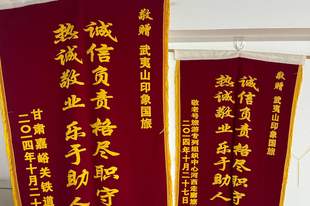 敬赠 武夷山印象国旅
诚信负责 恪尽职守
热诚敬业 乐于助人
甘肃嘉峪关铁道
二〇一四年十月二十
敬赠 武夷山印象国旅
诚信负责 恪尽职守
热诚敬业 乐于助人
敬老号旅游专列组织中心河西走廊旅
二〇一四年十月二十七日